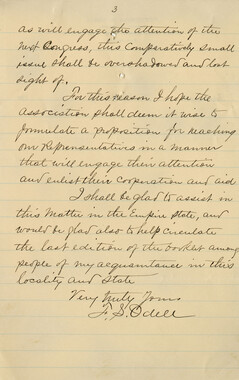 3
as will engage the attention of the
next Congress, this comparatively small
issue shall be overshadowed and lost
sight of.
For this reason I hope the
association shall deem it wise to
formulate a proposition for reaching
our Representatives in a manner
that will engage their attention
and enlist their cooperation and aid
I shall be glad to assist in
this matter in the Empire State, and
would be glad also to help circulate
the last edition of the booklet among
people of my acquaintance in this
locality and State
Very truly yours
F. S. Odell